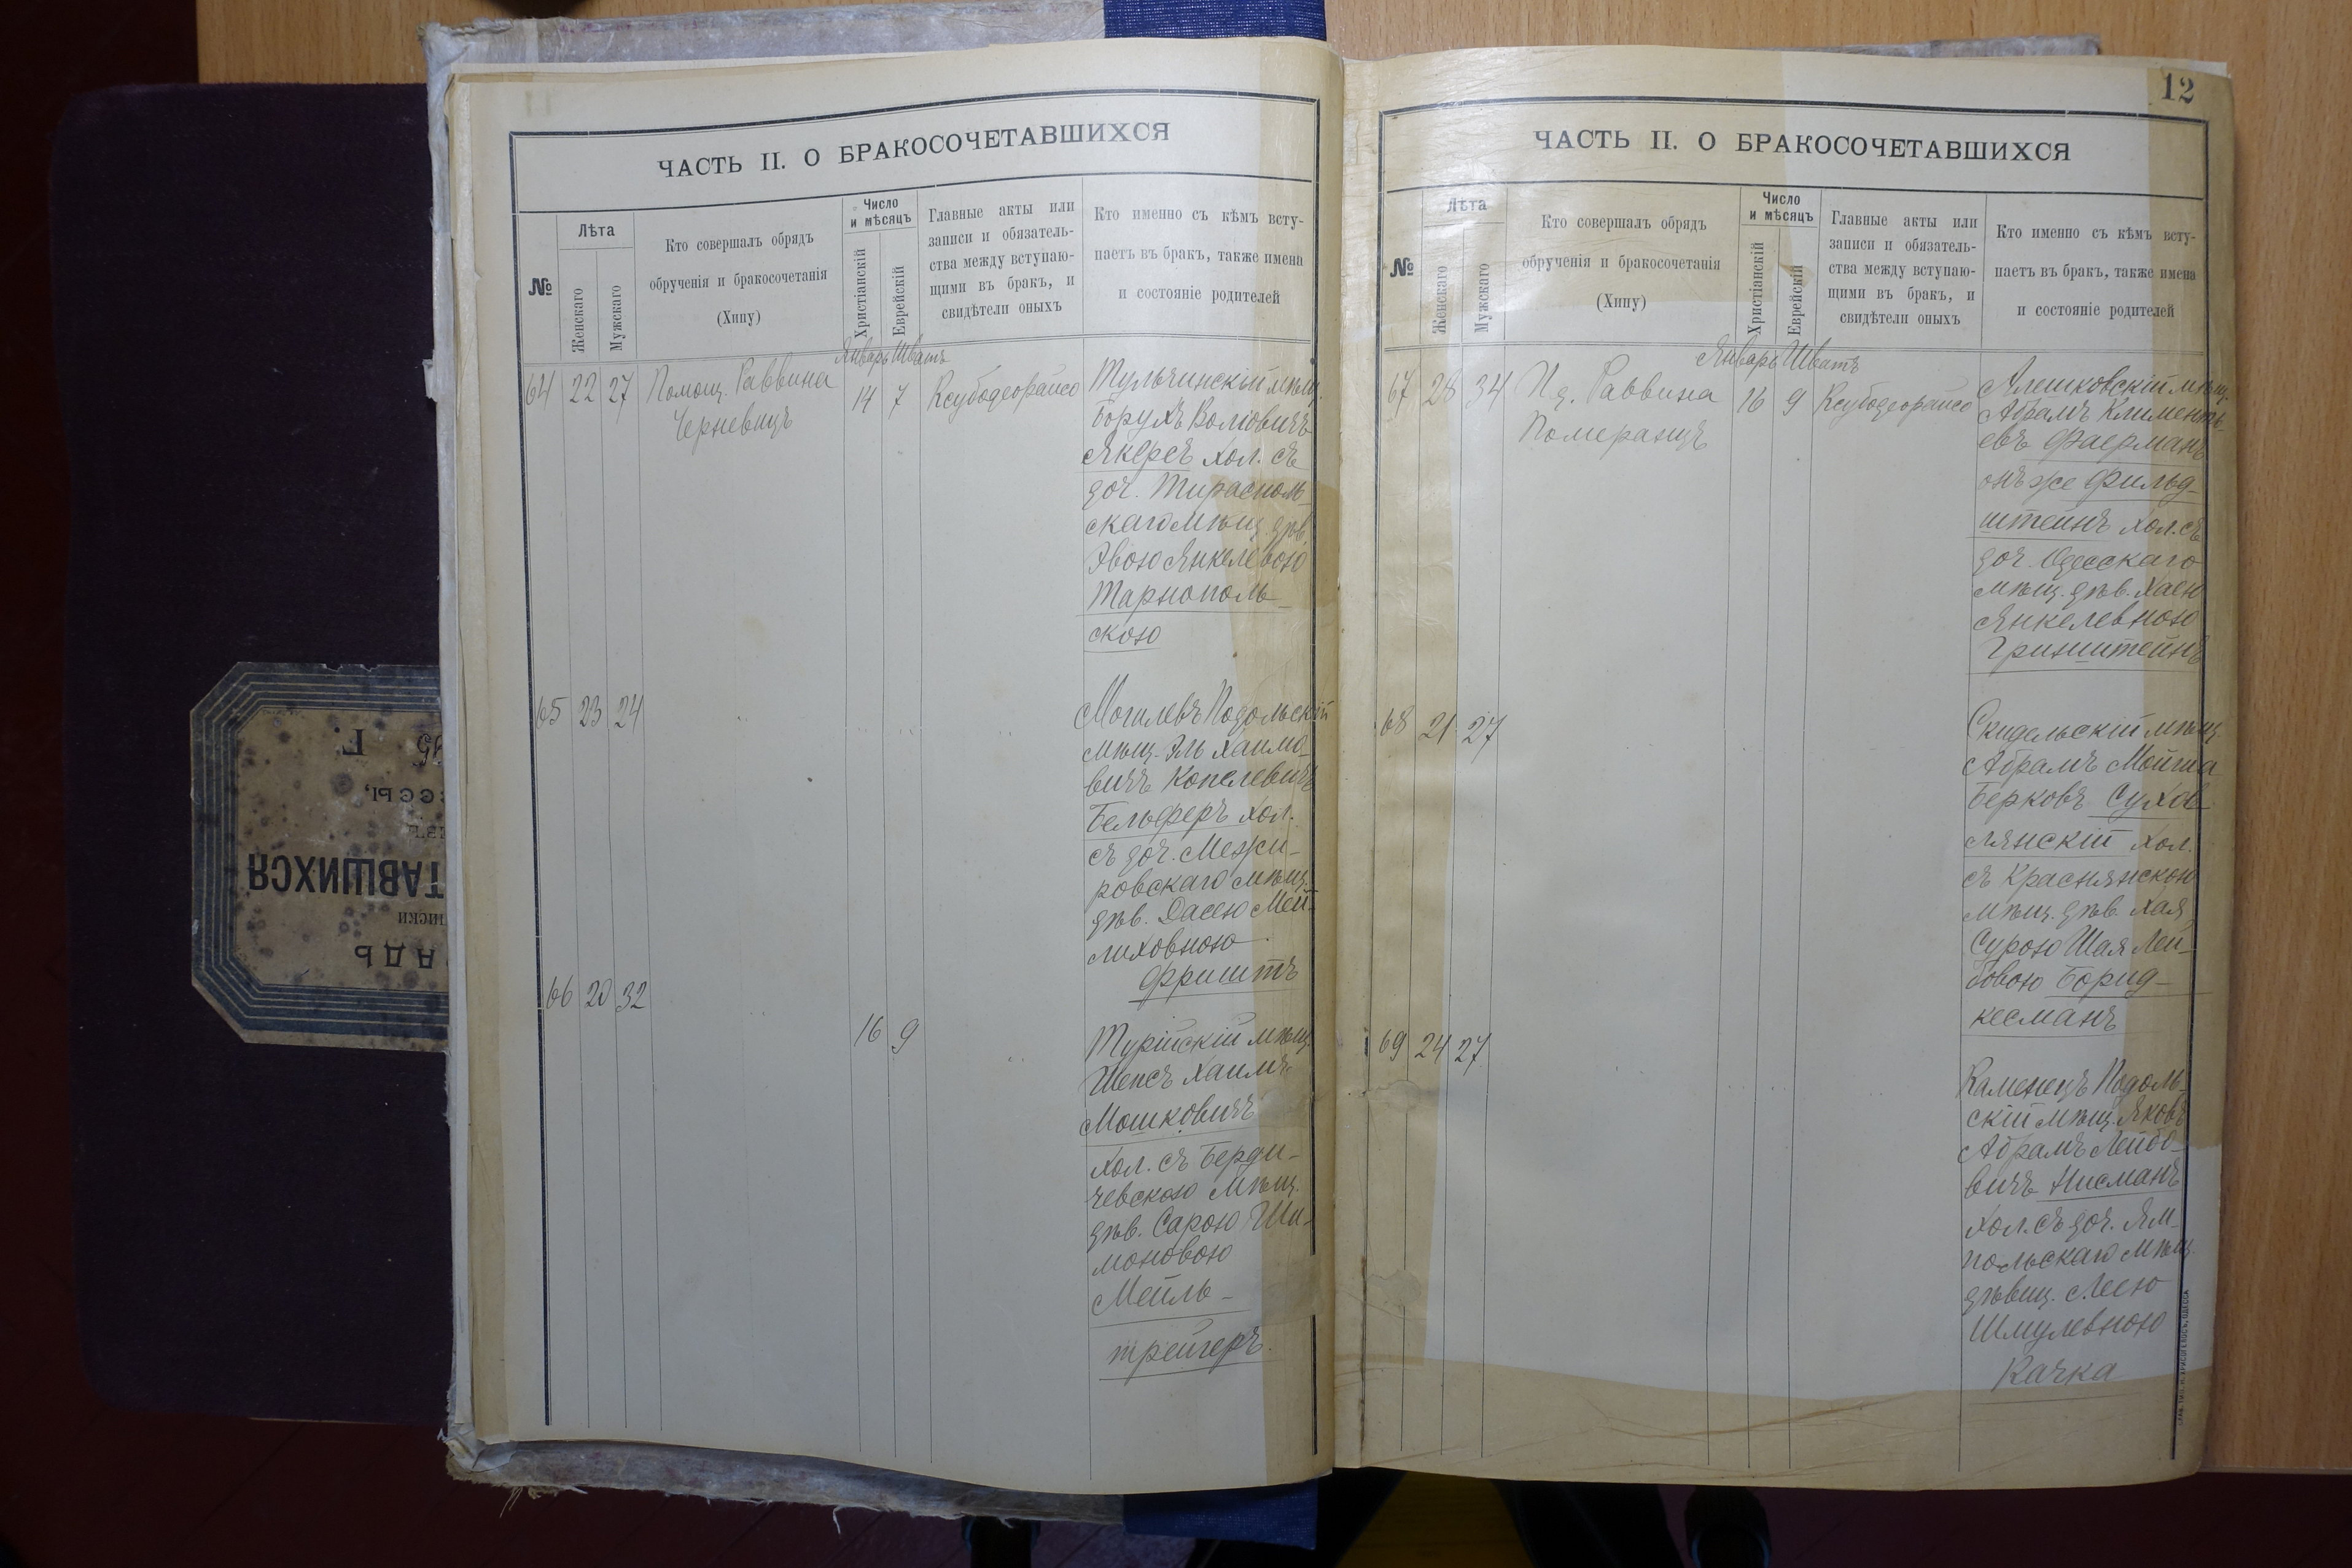 ЧАСТЬ II. О БРАКОСОЧЕТАВШИХСЯ
№
Лѣта
Женскаго
Мужскаго
Кто совершалъ обрядъ
обрученія и бракосочетанія
(Хипу)
Число
и мѣсяцъ
Христіанскій
Еврейскій
Главные акты или
записи и обязатель-
ства между вступаю-
щими въ бракъ, и
свидѣтели оныхъ
Кто именно съ кѣмъ всту-
паетъ въ бракъ, также имена
и состояніе родителей
Январь Шватъ
64 22 27 Помощ. Раввина 14 7 Ксубодеорайсо Тульчинскій мѣщ.
Черневицъ
Борухъ Волювичъ
Якеръ хол. съ
доч. Тирасполь-
скаго мѣщ. дѣв.
Эвою Янкелевою
Тарнополь-
скою
65 23 24 Могилевъ Подольскій
мѣщ. Эль Хаимо-
вичъ Копелевичъ
Бельферъ хол.
съ доч. Межи-
ровскаго мѣщ.
дѣв. Дасею Мей-
лиховною
Фриштъ
66 20 32
16 9 Турійскій мѣщ.
Шепсъ Хаимъ
Мошковичъ
хол. съ Берди-
чевскою мѣщ.
дѣв. Сарою Ши-
моновою
Мейль-
трейгеръ.
12
ЧАСТЬ II. О БРАКОСОЧЕТАВШИХСЯ
№
Лѣта
Женскаго
Мужскаго
Кто совершалъ обрядъ
обрученія и бракосочетанія
(Хипу)
Число
и мѣсяцъ
Христіанскій
Еврейскій
Главные акты или
записи и обязатель-
ства между вступаю-
щими въ бракъ, и
свидѣтели оныхъ
Кто именно съ кѣмъ всту-
паетъ въ бракъ, также имена
и состояніе родителей
Январь Шватъ
67 28 34 И д. Раввина 16 9 Ксубодеорайсо Алешковскій мѣщ.
Померанцъ
Абрамъ Клименть-
евъ Фаерманъ
онъ же Фильд-
штейнъ хол. съ
доч. Одесскаго
мѣщ. дѣв. Хаею
Янкелевною
Гринштейнъ
68 21 27 Скидельскій мѣщ.
Абрамъ Мойша
Берковъ Сухов-
лянскій хол.
съ Краснянскою
мѣщ. дѣв. Хая
Сурою Шая Лей-
бовою Борид-
кесманъ
69 24 27
Каменецъ Подоль-
скій мѣщ. Яковъ
Абрамъ Лейбо-
вичъ Нисманъ
хол. съ доч. Ям-
польскаго мѣщ.
дѣвиц. Леею
Шмулевною
Качка
ТАВШИХСЯ
АДЬ